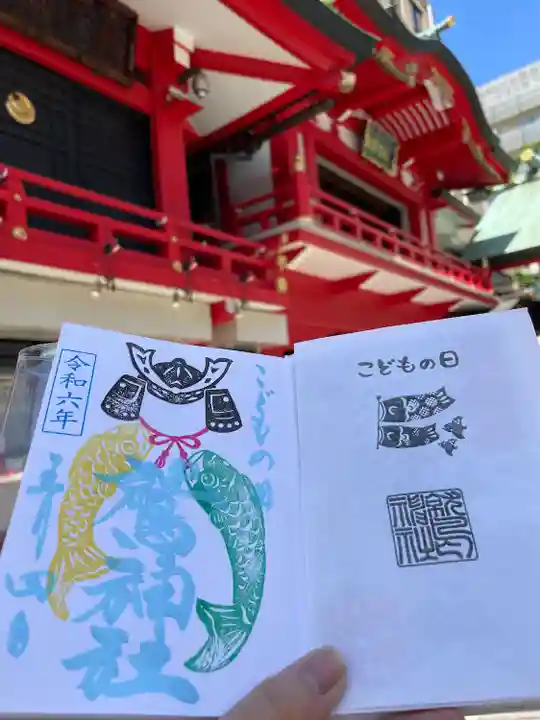 令和六年
こどもの日
鷲神社
五月四日
こどもの日